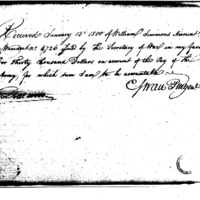 Received January 13th 1800 of William Simmons Account
Warrant No. 4726 issued by the Secretary of War in my favor
For Thirty Thousand Dollars on account of the Pay of the
Army, for which sum I am to be accountable
C Swan Paymr